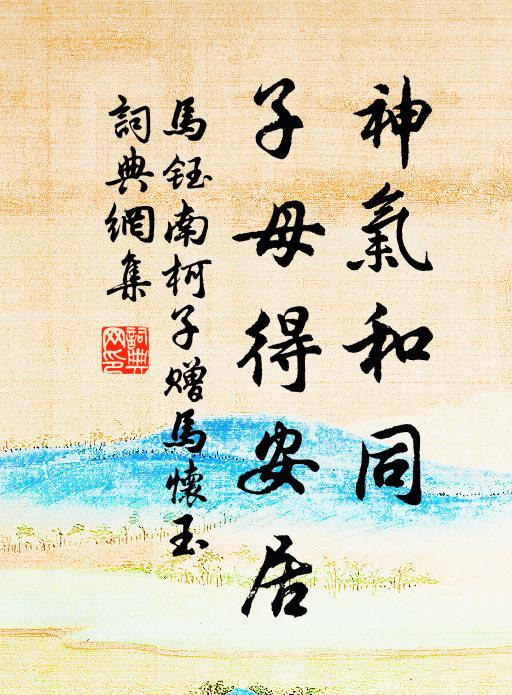 神氣和同
子母得安居
馬鈺南柯子贈馬懷玉
詞典網集
詞典網印